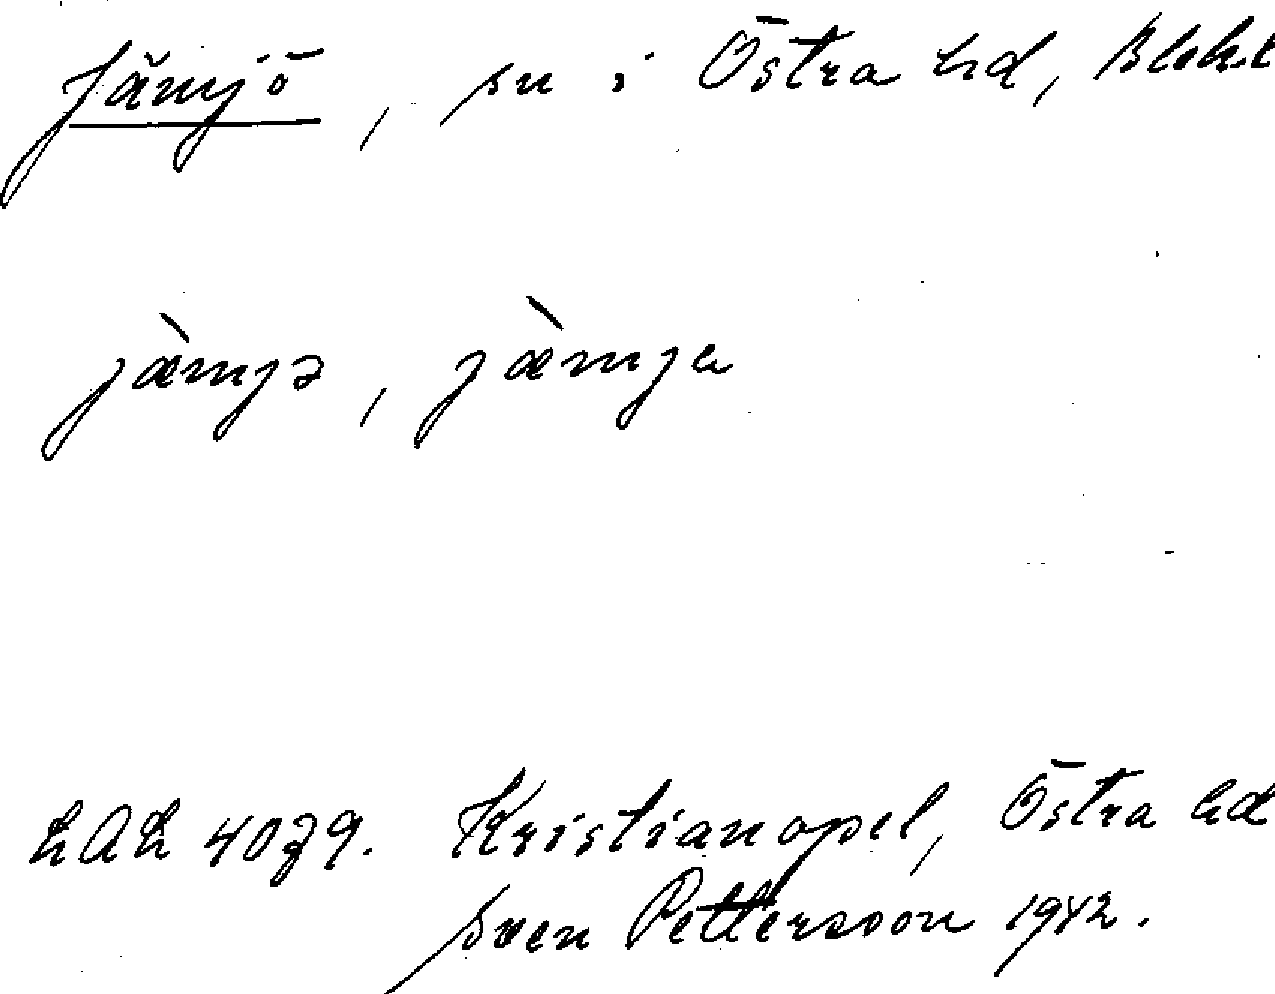 Jämjö, sn i Östra hd, Blek
jæ̀mjə, jæ̀mja
LAL 4079. Kristianopel, Östra hd
Sven Pettersson 1942.